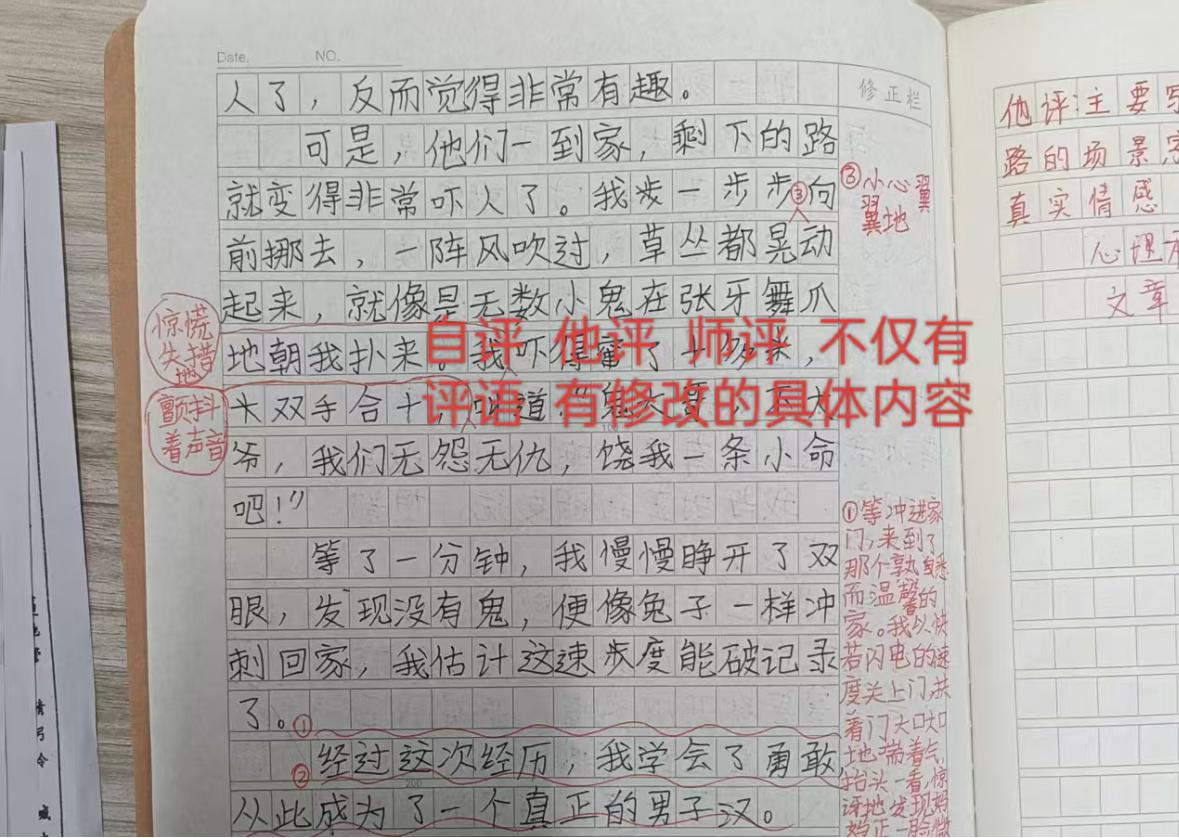 Date. NO.
人了，反而觉得非常有趣。
可是，他们一到家，剩下的路
就变得非常吓人了。我步一步步③向
前挪去，一阵风吹过，草丛都晃动
起来，就像是无数小鬼在张牙舞爪
地朝我扑来。我吓得
双手合十，
爷，我们无怨无仇，饶我一条小命
吧！”
等了一分钟，我慢慢睁开了双
眼，发现没有鬼，便像兔子一样冲
刺回家，我估计这速步度能破记录
了。①
②经过这次经历，我学会了勇敢，
从此成为了一个真正的男子汉。
100
200
自评 他评 师评 不仅有
评语 有修改的具体内容
惊慌
失措
地
颤抖
着声音
修正栏
③小心翼
翼地
①等冲进家
门，来到了
那个熟悉
而温馨的
家。我以快
若闪电的速
度关上门，扶
着门大口大口
地喘着气，
抬头一看，惊
讶地发现妈
妈正一脸
他评：主要写
路的场景，
真实情感
心理
文章
情
令